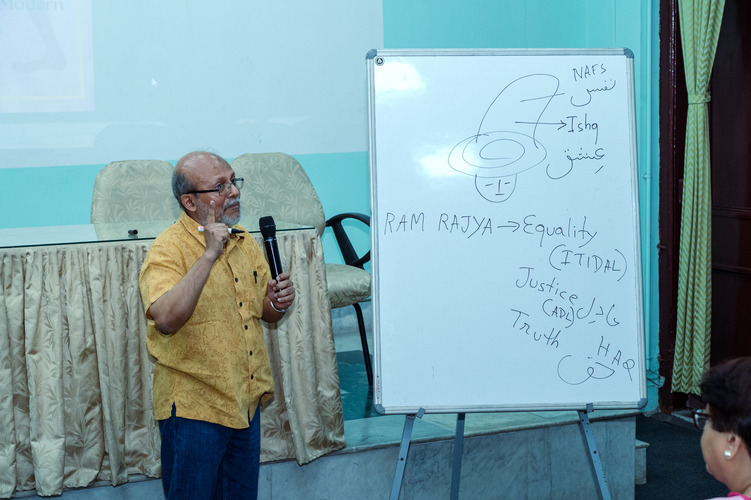 Modern
NAFS
نفس
Ishq
عشق
RAM RAJYA → Equality
(ITIDAL)
Justice
(ADL) عادل
Truth
HAQ
حق